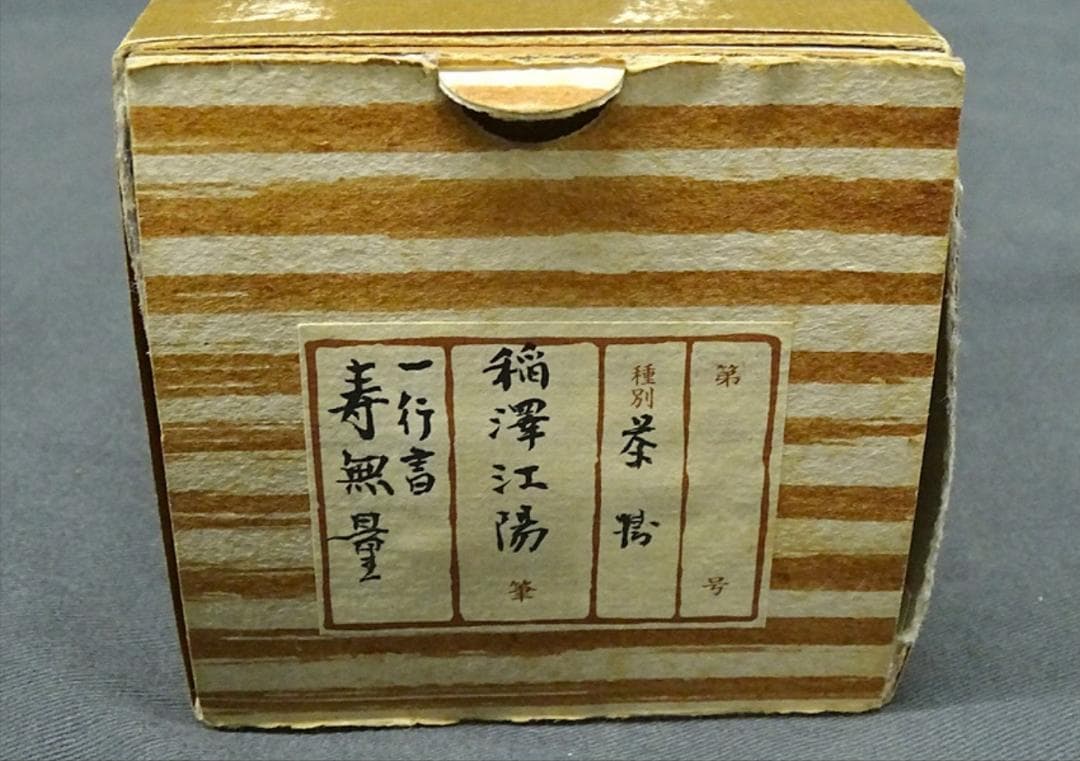 第 号
種別 茶掛
稲澤江陽 筆
一行書
寿無量